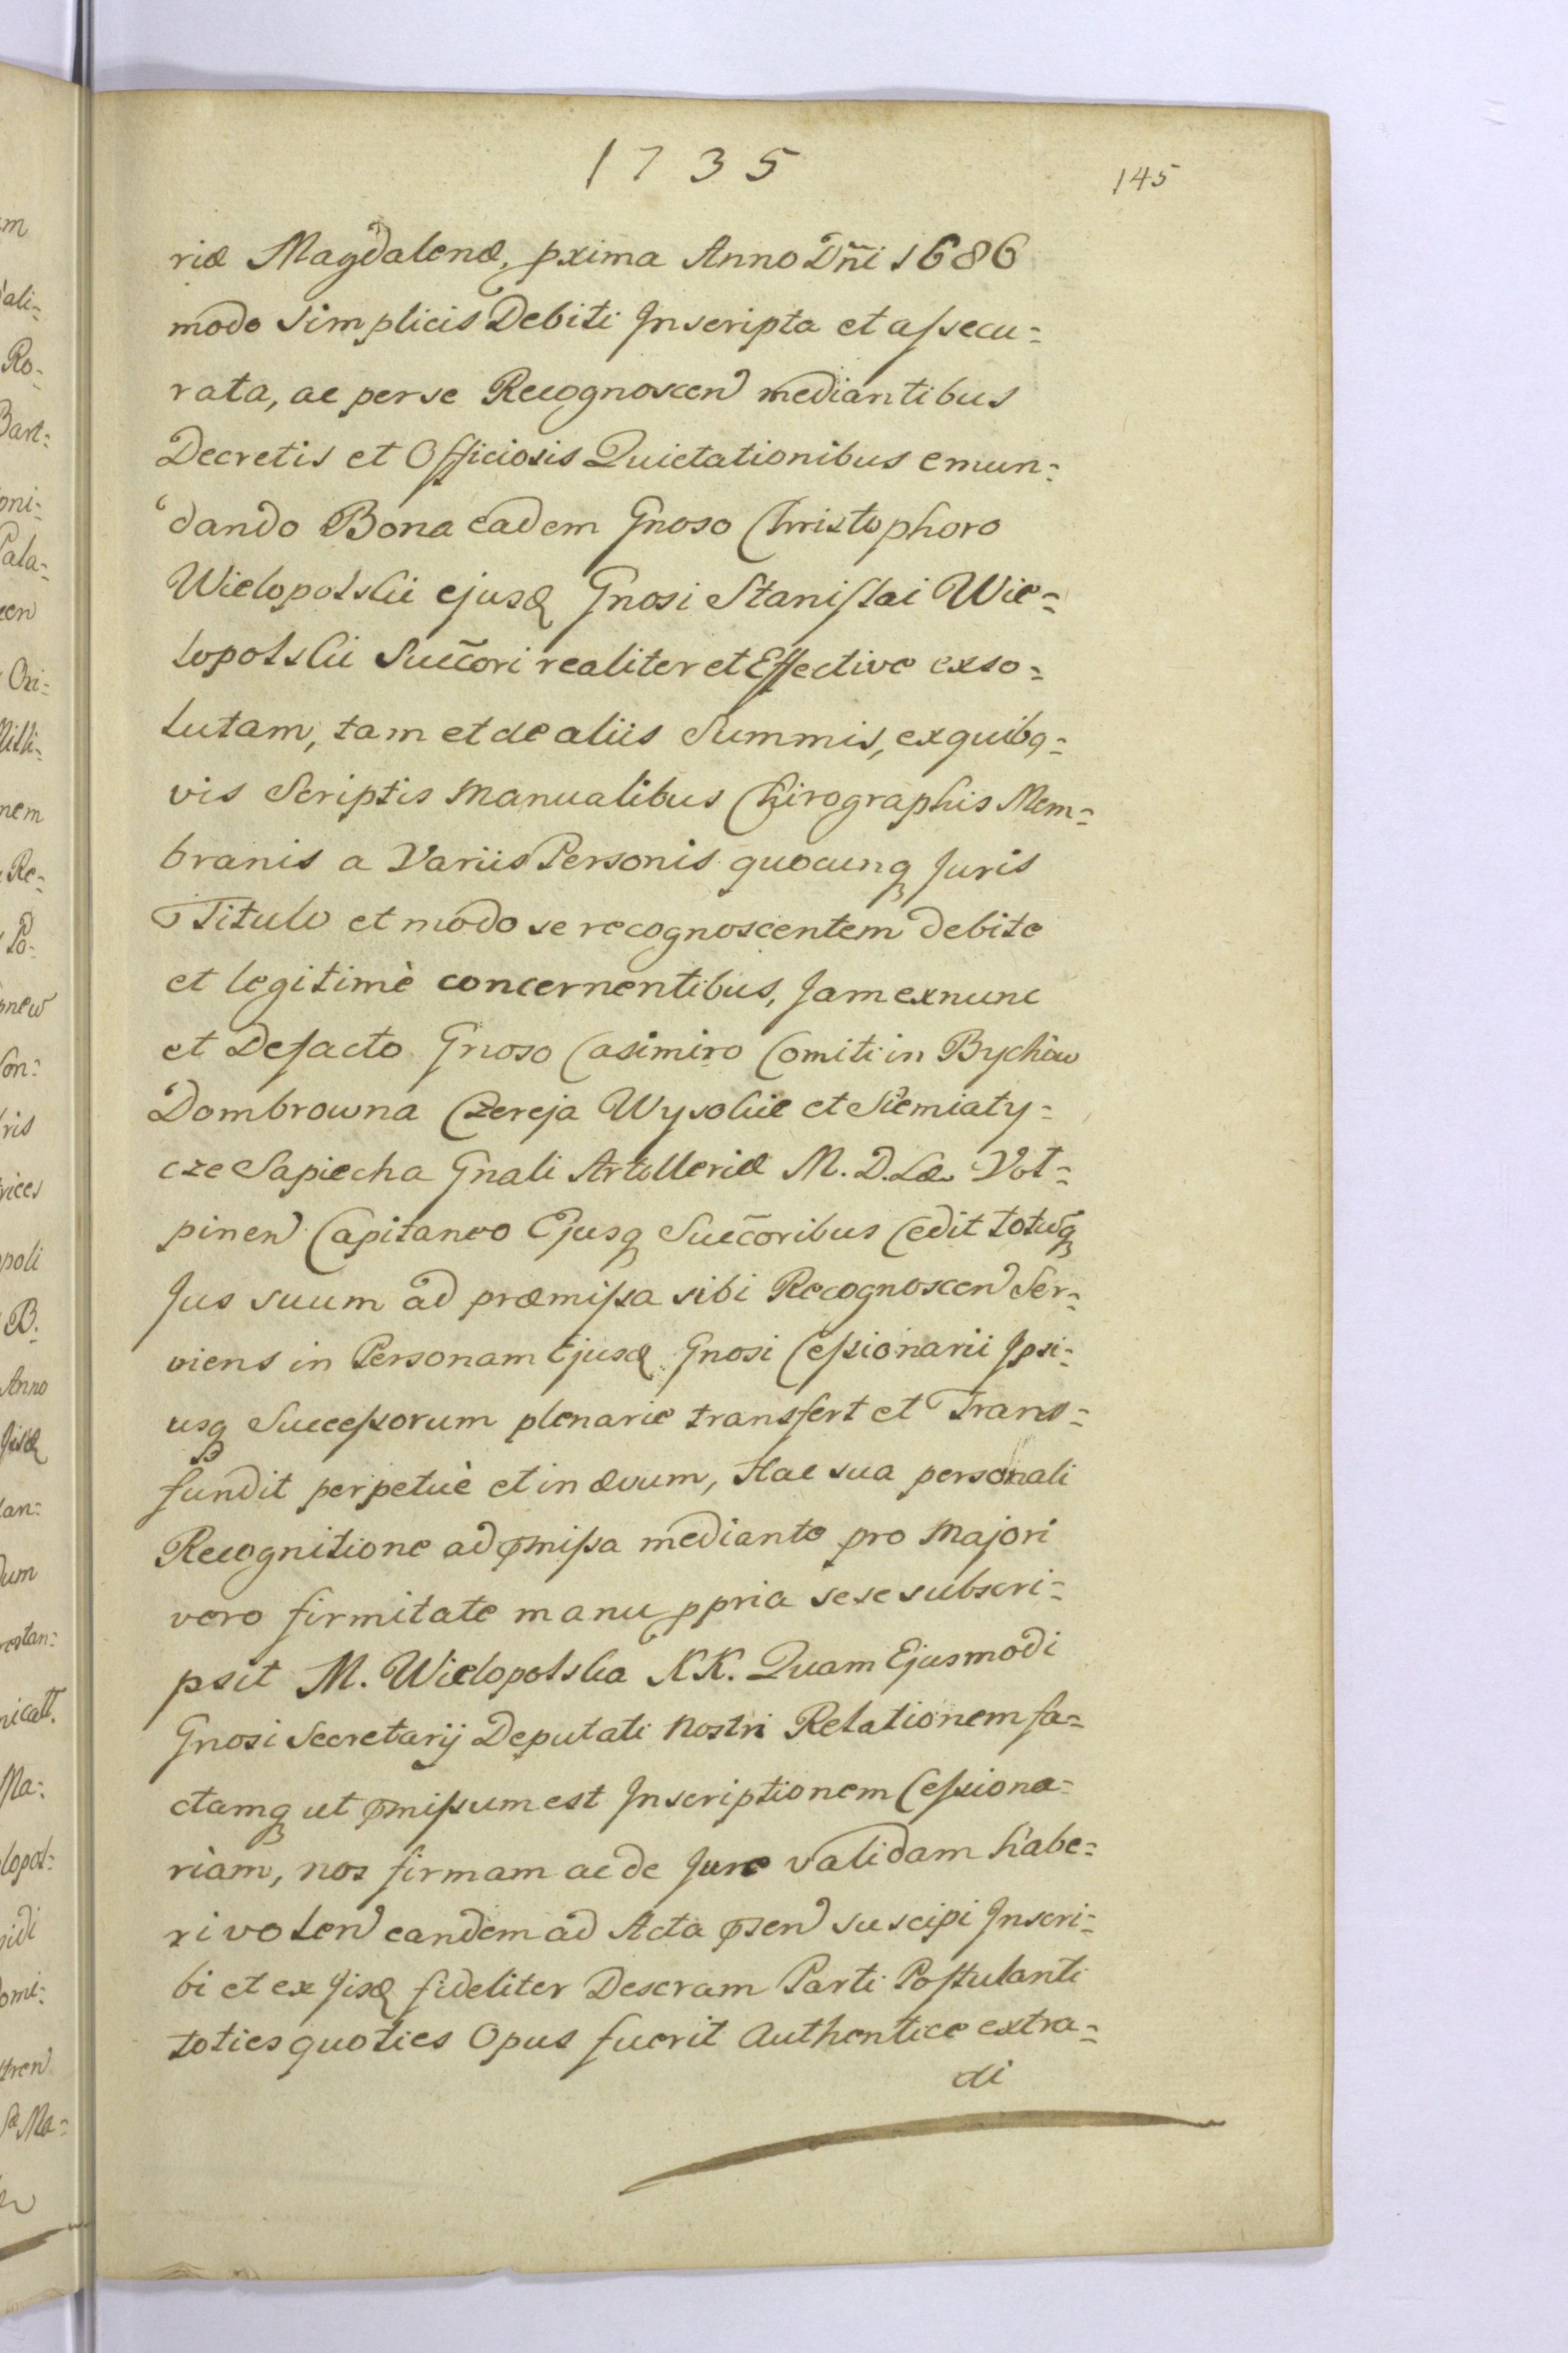 1735
145
riæ Magdalenæ, pxima Anno Dñi 1686
modo simplicis Debiti Inscripta et assecu=
rata, ac per se Recognoscen mediantibus
Decretis et Officiosis Quietationibus emun=
dando Bona eadem Gnoso Christophoro
Wielopolskii ejusd Gnosi Stanislai Wie=
lopolskii Succ̄ori realiter et Effective exso=
lutam, tam et de aliis Summis, ex quibq=
vis Scriptis Manualibus Chirographis Mem=
branis a Variis Personis quocunq Juris
Titulo et modo se recognoscentem debite
et legitimè concernentibus, Jam exnunc
et Defacto Gnoso Casimiro Comiti in Bychow
Dombrowna Czereja Wysokie et Siemiaty=
cze Sapiecha Gnali Artolleriæ M. D. Læ Vol=
pinen Capitaneo Ejusq Succ̄oribus Cedit totūq
Jus suum ad præmissa sibi Recognoscen Ser=
viens in Personam Ejusd Gnosi Cessionarii Ipsi=
usq Successorum plenarie transfert et Trans=
fundit perpetuè et in ævum, Hac sua personali
Recognitione ad pmissa mediante pro Majori
vero firmitate manu ppria sese subscri=
psit M. Wielopolska KK. Quam Ejusmodi
Gnosi Secretarij Deputati Nostri Relationem fa=
ctamq ut pmissum est Inscriptionem Cessiona=
riam, nos firmam ac de Jure validam habe=
ri volen eandem ad Acta psen suscipi Inscri=
bi et ex Jisd fideliter Descram Parti Postulanti
toties quoties Opus fuerit Authentice extra=
di